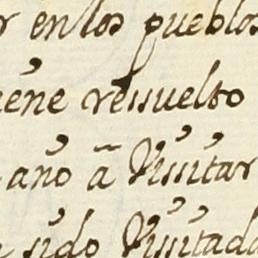 r en los pueblos
iene ressuelto
año a Visitar
sido Visitada